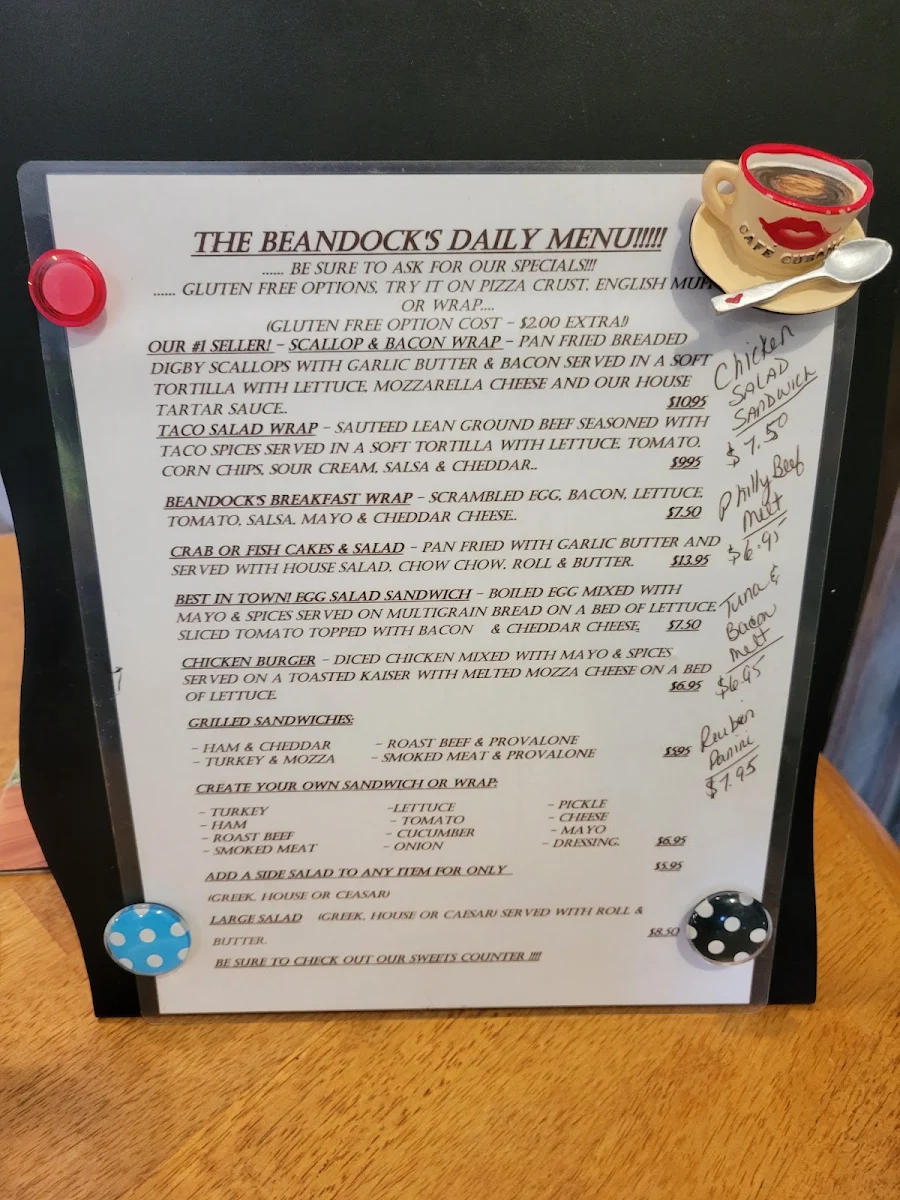 THE BEANDOCK'S DAILY MENU!!!!!
...... BE SURE TO ASK FOR OUR SPECIALS!!!
...... GLUTEN FREE OPTIONS, TRY IT ON PIZZA CRUST, ENGLISH MUFF
OR WRAP....
(GLUTEN FREE OPTION COST – $2.00 EXTRA!)
OUR #1 SELLER! – SCALLOP & BACON WRAP – PAN FRIED BREADED
DIGBY SCALLOPS WITH GARLIC BUTTER & BACON SERVED IN A SOFT
TORTILLA WITH LETTUCE, MOZZARELLA CHEESE AND OUR HOUSE
TARTAR SAUCE.. $10.95
TACO SALAD WRAP – SAUTEED LEAN GROUND BEEF SEASONED WITH
TACO SPICES SERVED IN A SOFT TORTILLA WITH LETTUCE, TOMATO,
CORN CHIPS, SOUR CREAM, SALSA & CHEDDAR.. $9.95
BEANDOCK'S BREAKFAST WRAP – SCRAMBLED EGG, BACON, LETTUCE,
TOMATO, SALSA, MAYO & CHEDDAR CHEESE.. $7.50
CRAB OR FISH CAKES & SALAD – PAN FRIED WITH GARLIC BUTTER AND
SERVED WITH HOUSE SALAD, CHOW CHOW, ROLL & BUTTER. $13.95
BEST IN TOWN! EGG SALAD SANDWICH – BOILED EGG MIXED WITH
MAYO & SPICES SERVED ON MULTIGRAIN BREAD ON A BED OF LETTUCE,
SLICED TOMATO TOPPED WITH BACON & CHEDDAR CHEESE, $7.50
CHICKEN BURGER – DICED CHICKEN MIXED WITH MAYO & SPICES
SERVED ON A TOASTED KAISER WITH MELTED MOZZA CHEESE ON A BED
OF LETTUCE. $6.95
GRILLED SANDWICHES:
– HAM & CHEDDAR – ROAST BEEF & PROVALONE
– TURKEY & MOZZA – SMOKED MEAT & PROVALONE $5.95
CREATE YOUR OWN SANDWICH OR WRAP:
– TURKEY –LETTUCE – PICKLE
– HAM – TOMATO – CHEESE
– ROAST BEEF – CUCUMBER – MAYO
– SMOKED MEAT – ONION – DRESSING. $6.95
ADD A SIDE SALAD TO ANY ITEM FOR ONLY $5.95
(GREEK, HOUSE OR CEASAR)
LARGE SALAD (GREEK, HOUSE OR CAESAR) SERVED WITH ROLL &
BUTTER. $8.50
BE SURE TO CHECK OUT OUR SWEETS COUNTER !!!!
Chicken
SALAD
SANDWICH
$7.50
Philly Beef
Melt
$6.95
Tuna &
Bacon
Melt
$6.95
Reuben
Panini
$7.95
CAFÉ CUBANO